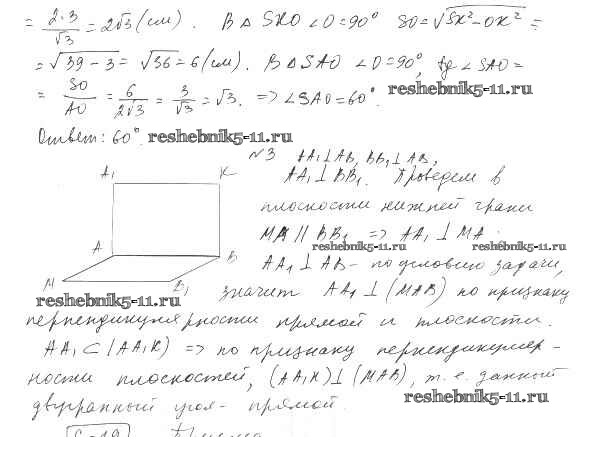 = 2·3/√3 = 2√3 (см). В △ SKO ∠O = 90° SO = √SK² − OK² =
= √39 − 3 = √36 = 6 (см). В △ SAO ∠O = 90°, tg ∠SAO =
= SO/AO = 6/2√3 = 3/√3 = √3. => ∠SAO = 60°.
reshebnik5-11.ru
Ответ: 60°. reshebnik5-11.ru
№3 AA₁ ⊥ AB, BB₁ ⊥ AB,
A₁ K AA₁ ⊥ BB₁. Проведем в
плоскости нижней грани
MA || BB₁ => AA₁ ⊥ MA.
reshebnik5-11.ru reshebnik5-11.ru
A B AA₁ ⊥ AB - по условию задачи,
M B₁
reshebnik5-11.ru значит AA₁ ⊥ (MAB) по признаку
перпендикулярности прямой и плоскости.
AA₁ ⊂ (AA₁K) => по признаку перпендикуляр-
ности плоскостей, (AA₁K) ⊥ (MAB), т.е. данный
двугранный угол - прямой.
reshebnik5-11.ru